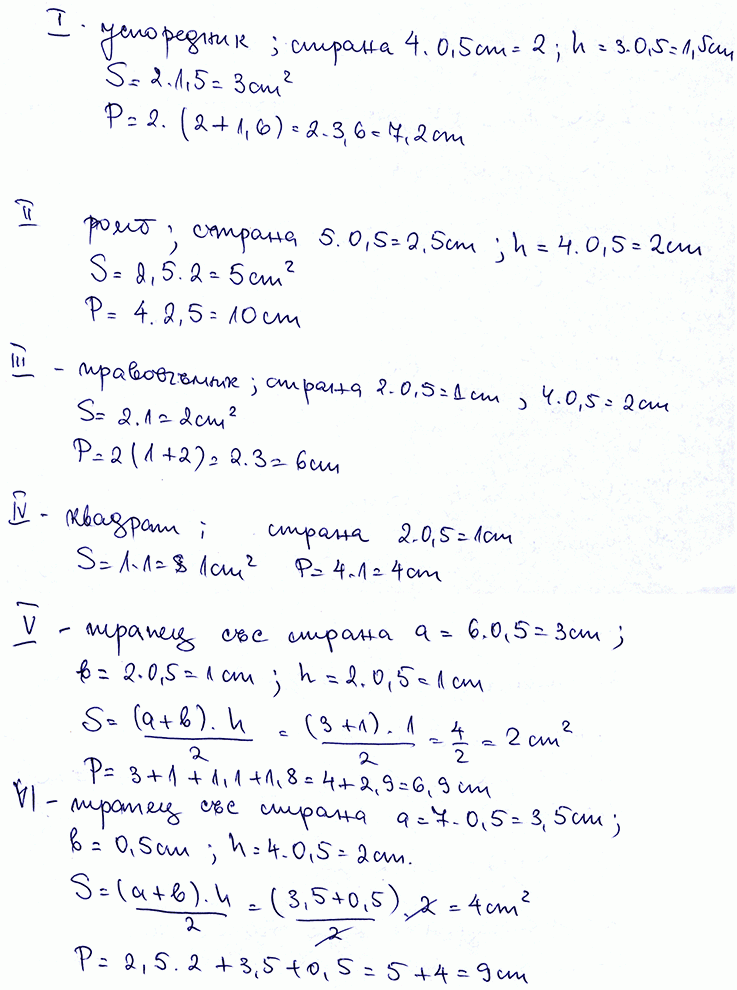 I - успоредник ; страна 4.0,5cm = 2 ; h = 3.0,5 = 1,5cm
S = 2.1,5 = 3cm²
P = 2.(2+1,6) = 2.3,6 = 7,2cm
II ромб ; страна 5.0,5 = 2,5cm ; h = 4.0,5 = 2cm
S = 2,5.2 = 5cm²
P = 4.2,5 = 10cm
III - правоъгълник ; страна 2.0,5 = 1cm , 4.0,5 = 2cm
S = 2.1 = 2cm²
P = 2(1+2) = 2.3 = 6cm
IV - квадрат ; страна 2.0,5 = 1cm
S = 1.1 = 1cm² P = 4.1 = 4cm
V - трапец със страна a = 6.0,5 = 3cm ;
в = 2.0,5 = 1cm ; h = 2.0,5 = 1cm
S = (a+в).h/2 = (3+1).1/2 = 4/2 = 2cm²
P = 3+1+1,1+1,8 = 4+2,9 = 6,9cm
VI - трапец със страна a = 7.0,5 = 3,5cm ;
в = 0,5cm ; h = 4.0,5 = 2cm.
S = (a+в).h/2 = (3,5+0,5)/2 .2 = 4cm²
P = 2,5.2+3,5+0,5 = 5+4 = 9cm